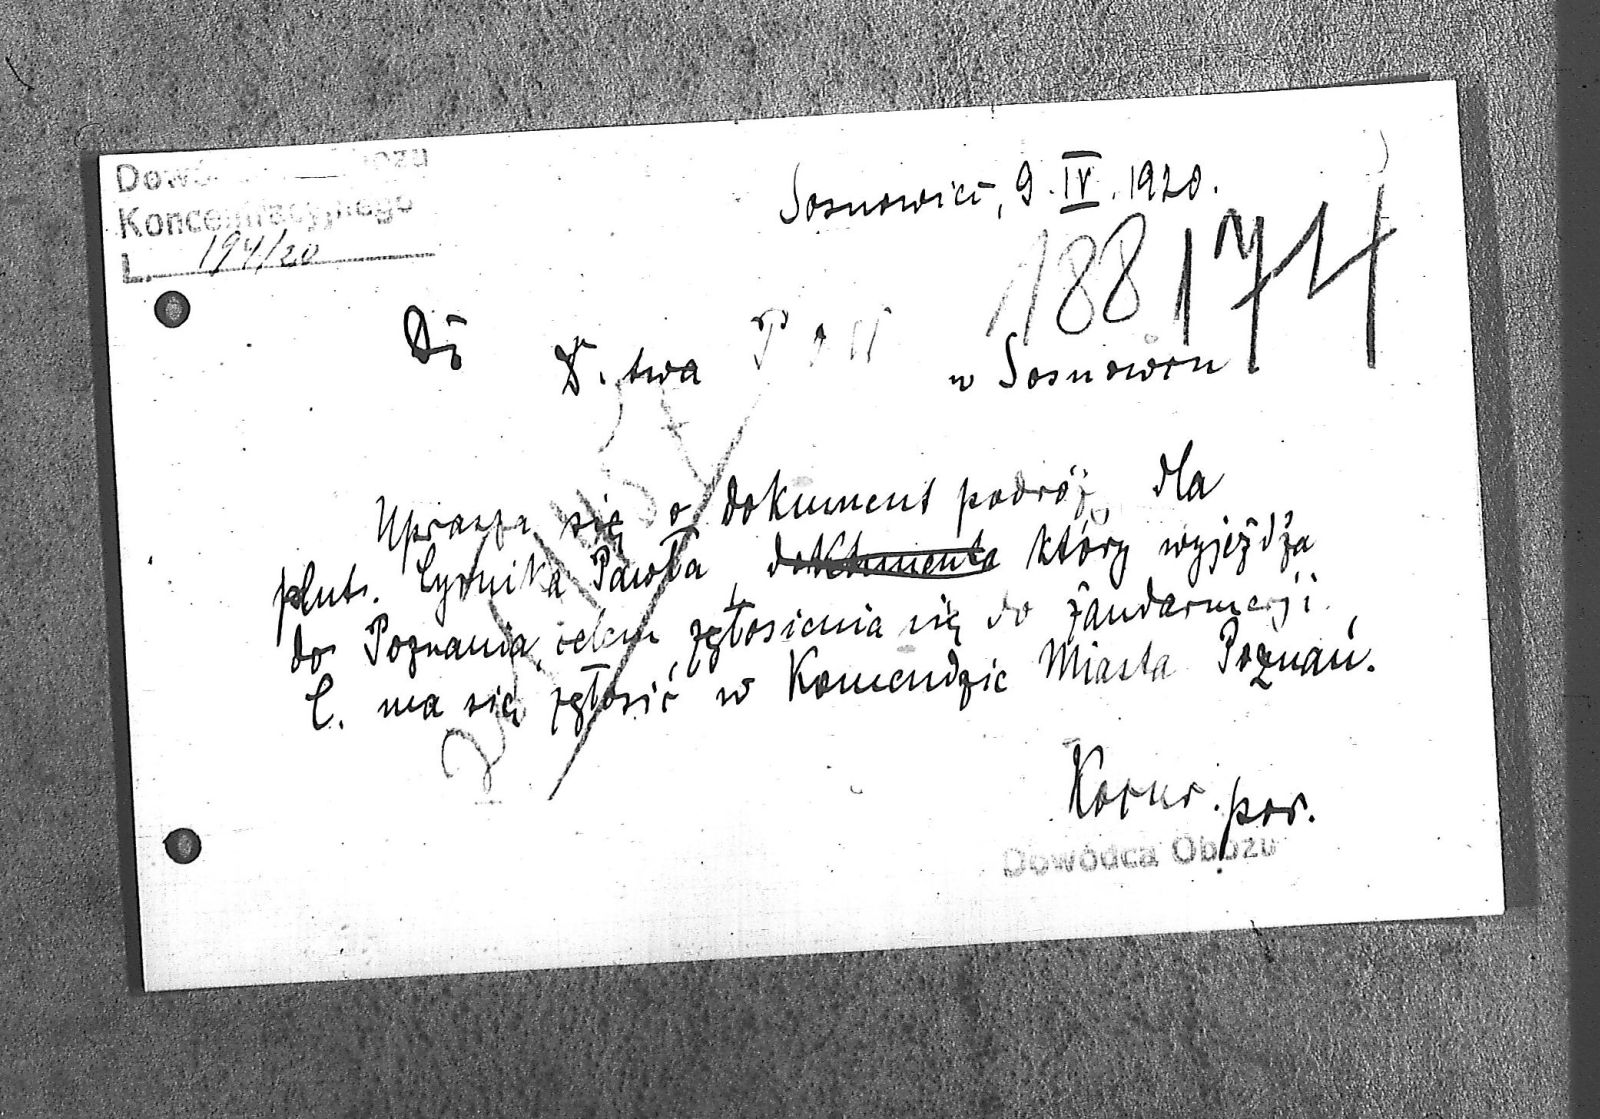 Dowó ozu
Koncentracyjnego
L. 194/20
Sosnowiec, 9.IV.1920.
188174
Do D.twa P O W
w Sosnowcu
Uprasza się o dokument podróż dla
plut. Cyrnika Pawła, dokumenta który wyjeżdża
do Poznania, celem zgłosienia się do żandarmerji.
C. ma się zgłosić w Komendzie Miasta Poznań.
por.
Dowódca Obozu